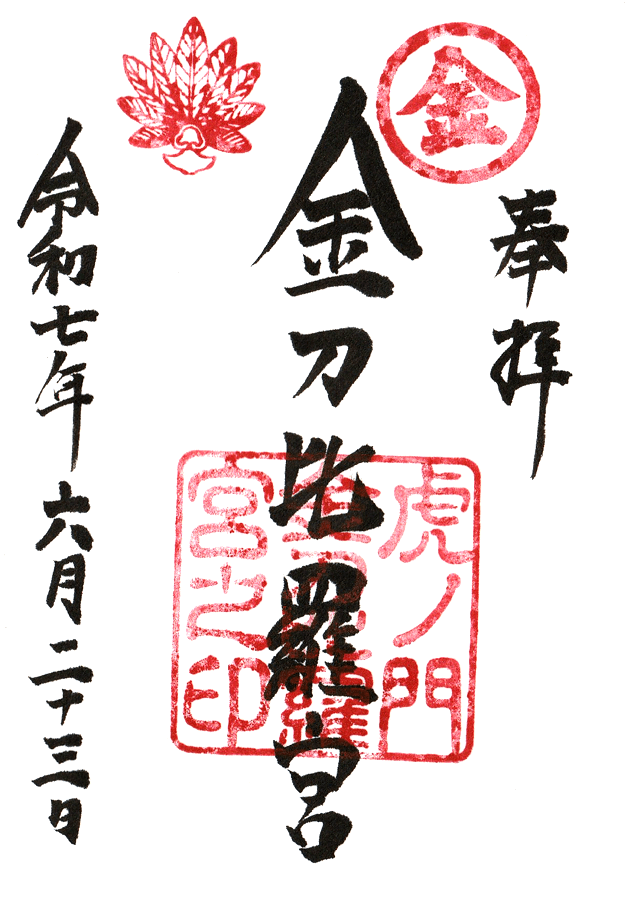 金
奉拝
金刀比羅宮
虎ノ門
金刀比羅
宮之印
令和七年六月二十三日